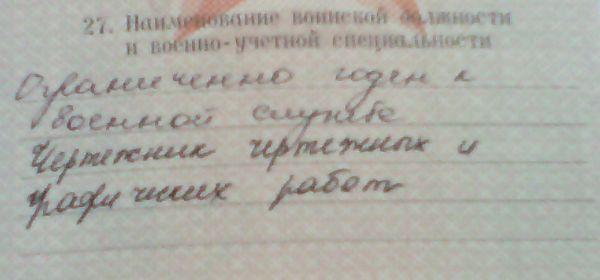 27. Наименование воинской должности
и военно-учетной специальности
Ограниченно годен к
военной службе
Чертежник чертежных и
графических работ